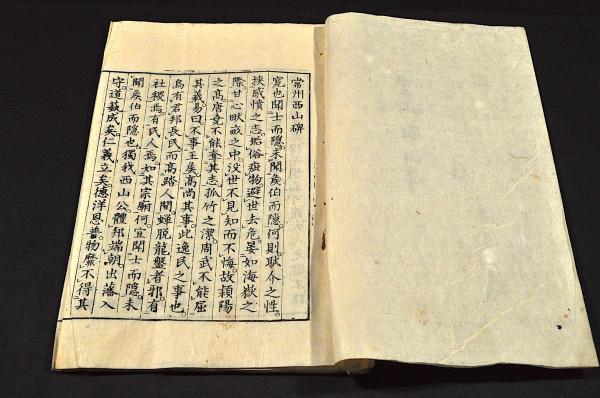 常州西山碑
寛也聞士而隱未聞矦伯而隱何則耿介之性
挾感憤之志垢俗疵物避世去危晏如海嶽之
際甘心畎畝之中没世不見知而不悔故潁陽
之高唐堯不能奪其志孤竹之潔周武不能屈
其義易曰不事王矦高尚其事此逸民之事也
烏有君邦長民而高踏人間蟬脱龍盤者邪有
社稷焉有民人焉如其宗廟何宜聞士而隱未
聞矦伯而隱也獨我西山公體邦端朝出藩入
守道藝成矣仁義立矣德洋恩普物靡不得其